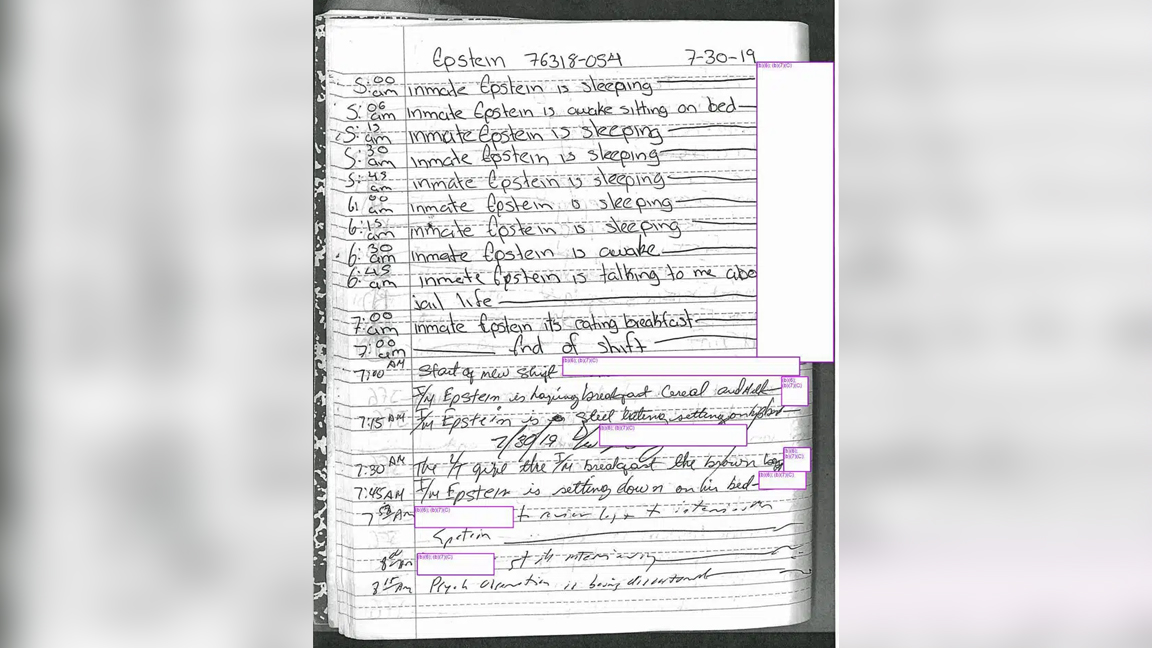 Epstein 76318-054 7-30-19
(b)(6); (b)(7)(C)
5:00 am inmate Epstein is sleeping
5:06 am inmate Epstein is awake sitting on bed
5:15 am inmate Epstein is sleeping
5:30 am inmate Epstein is sleeping
5:45 am inmate Epstein is sleeping
6:00 am inmate Epstein is sleeping
6:15 am inmate Epstein is sleeping
6:30 am inmate Epstein is awake
6:45 am inmate Epstein is talking to me abo
jail life
7:00 am inmate Epstein its eating breakfast
7:00 am End of shift
7:00 AM Start of new shift (b)(6); (b)(7)(C)
I/M Epstein is having breakfast Cereal and Milk (b)(6); (b)(7)(C)
7:15 AM I/M Epstein is steel eating, setting on his bed
7/30/19 (b)(6); (b)(7)(C)
7:30 AM The the I/M breakfast the brown bag (b)(6); (b)(7)(C)
7:45 AM I/M Epstein is setting down on his bed (b)(6); (b)(7)(C)
(b)(6); (b)(7)(C) to review log + to
Epstein
(b)(6); (b)(7)(C) interviewing
8:15 Am Psych Observation is being